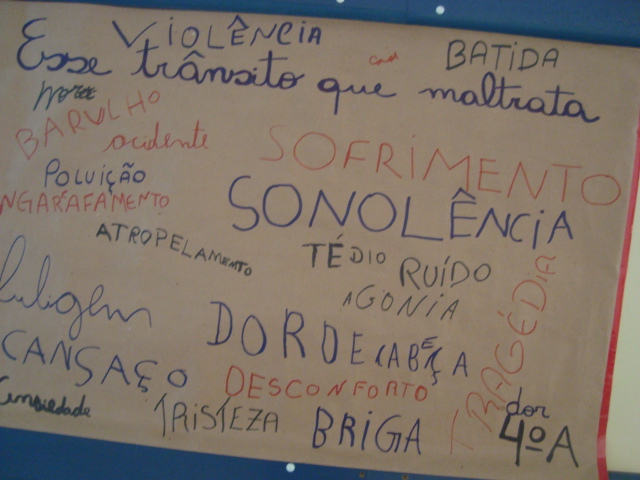 VIOLÊNCIA
BATIDA
Esse trânsito que maltrata
BARULHO
acidente
SOFRIMENTO
POLUIÇÃO
NGARAFAMENTO
SONOLÊNCIA
ATROPELAMENTO
TÉDIO
RUÍDO
AGONIA
TRAGÉDIA
DOR DE CABEÇA
CANSAÇO
DESCONFORTO
ansiedade
TRISTEZA
BRIGA
dor
4º A